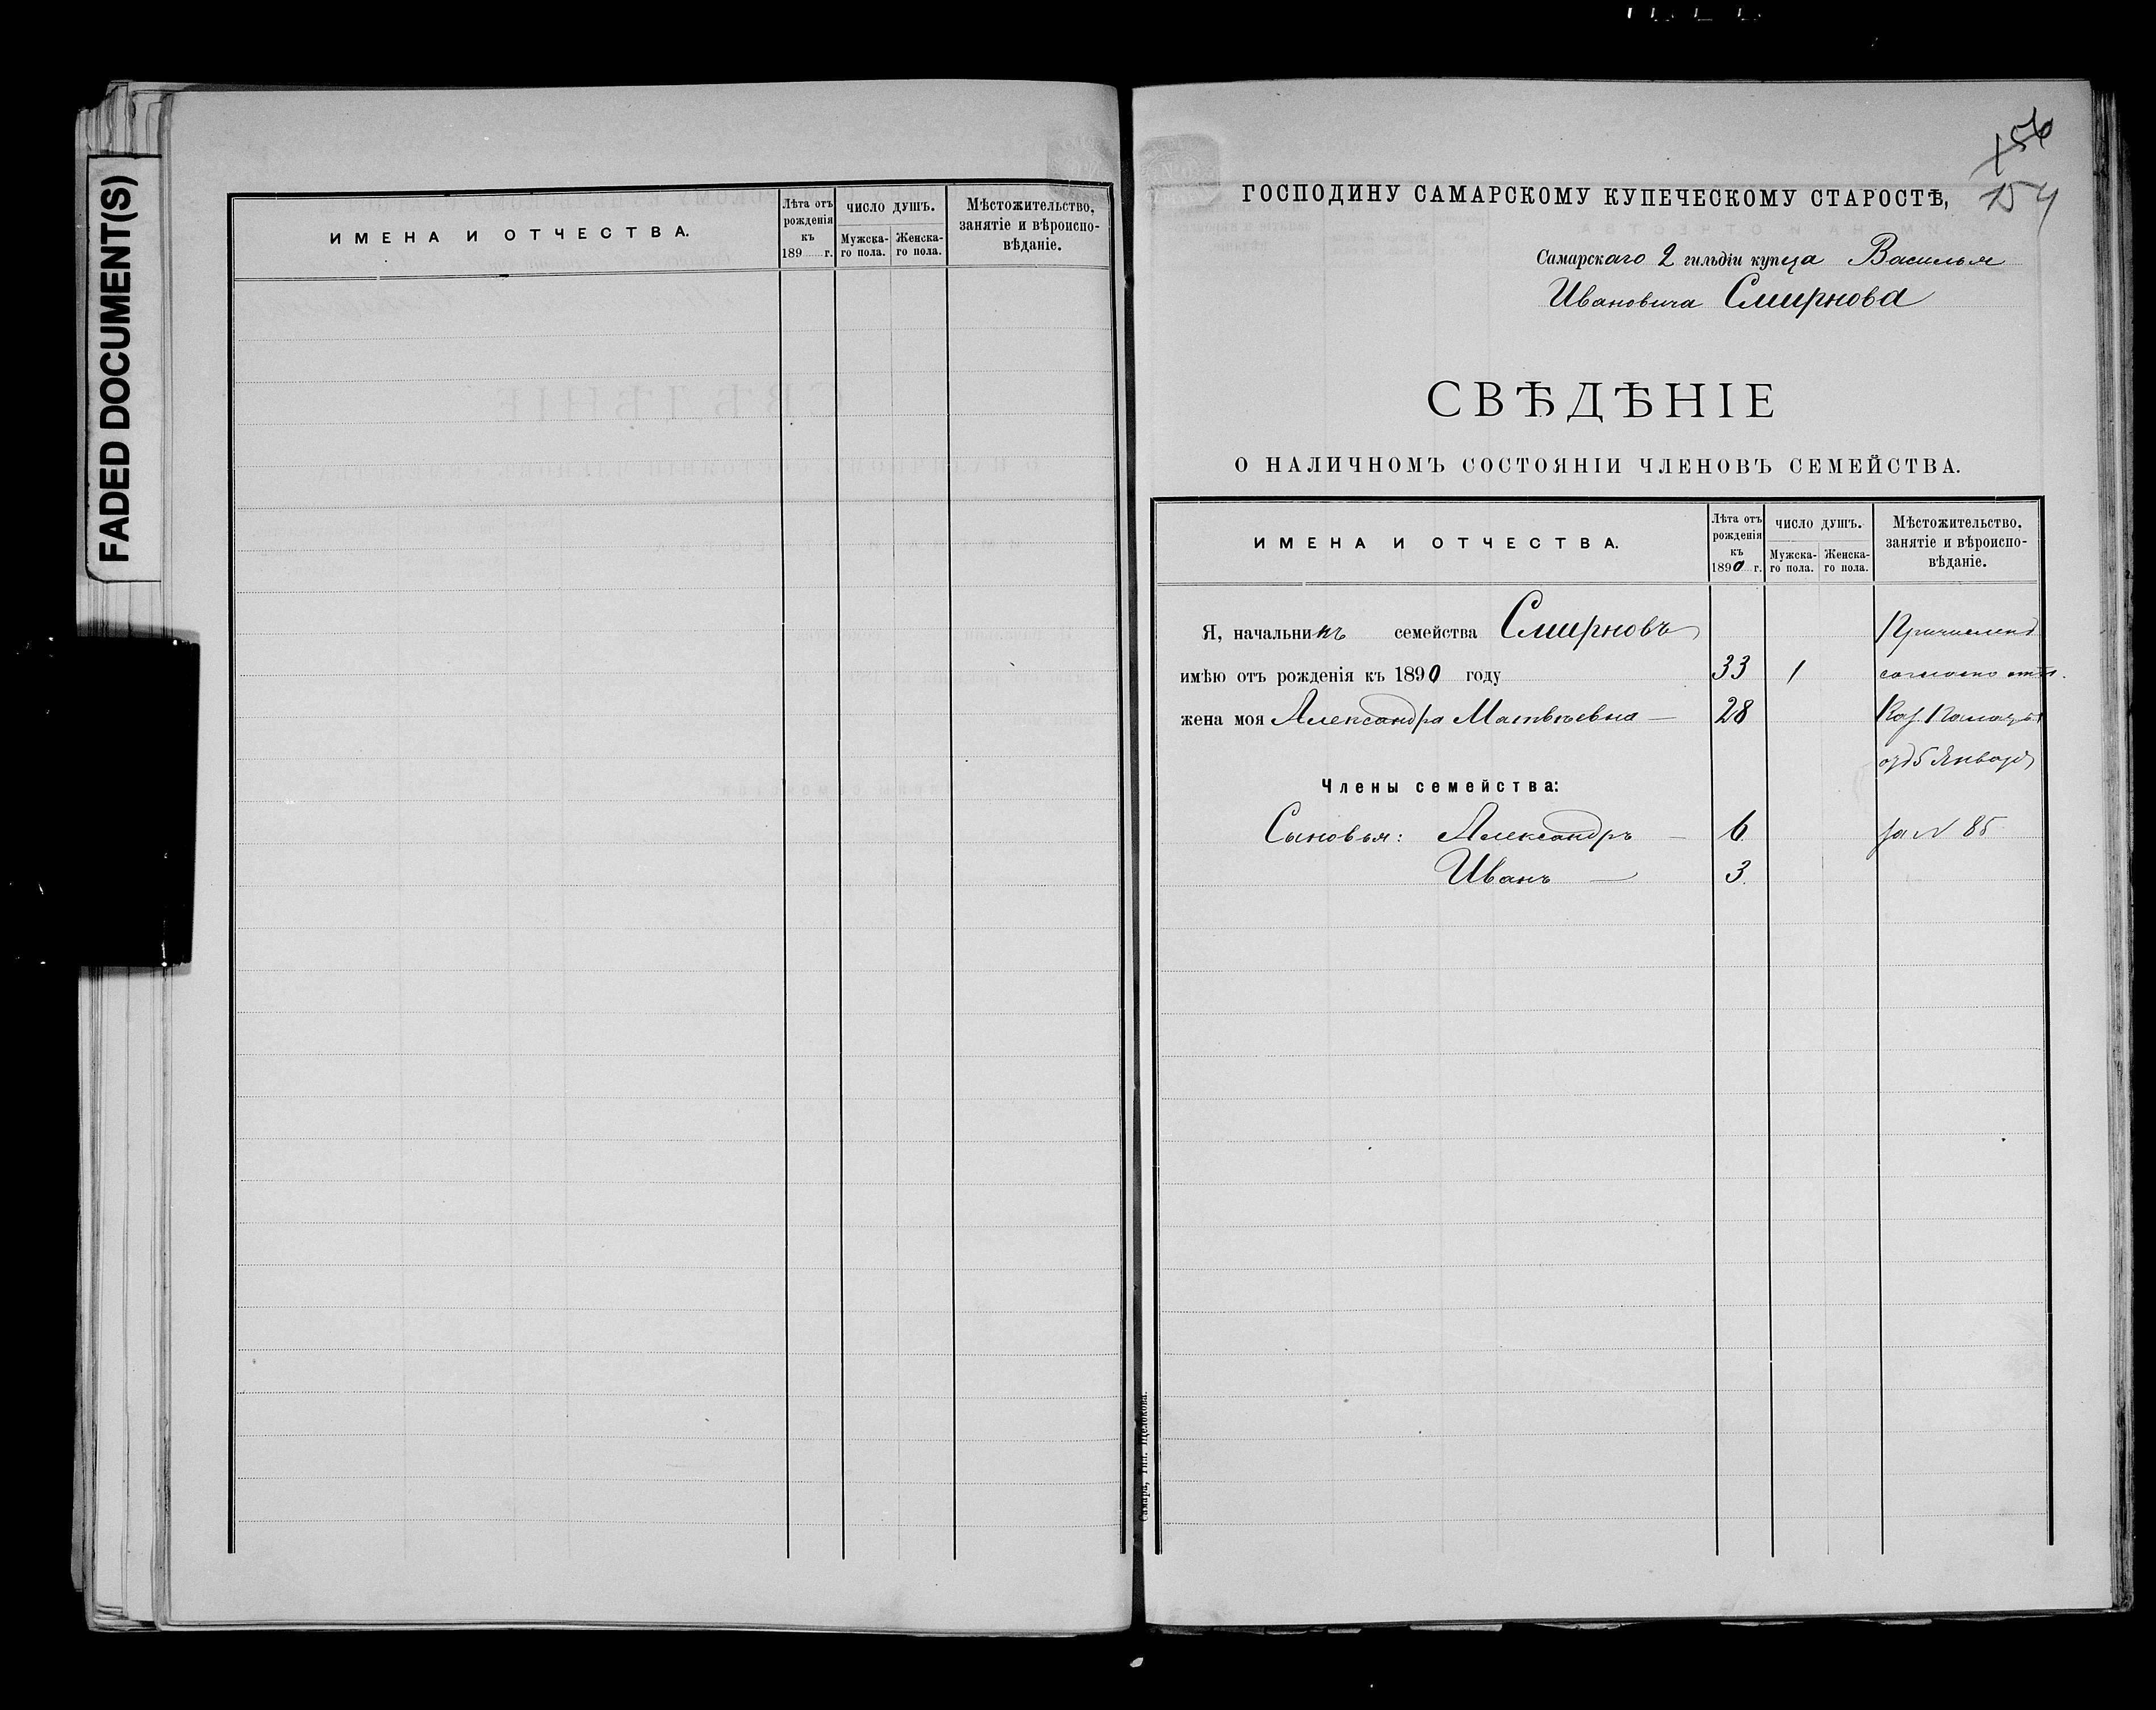 FADED DOCUMENT(S)
ИМЕНА И ОТЧЕСТВА.
Лѣта отъ рожденія къ 189 г.
ЧИСЛО ДУШЪ.
Мужска-го пола.
Женска-го пола.
Мѣстожительство,
занятіе и вѣроиспо-
вѣданіе.
156
154
ГОСПОДИНУ САМАРСКОМУ КУПЕЧЕСКОМУ СТАРОСТѢ,
Самарскаго 2 гильдіи купца Василья
Ивановича Смирнова
СВѢДѢНІЕ
О НАЛИЧНОМЪ СОСТОЯНІИ ЧЛЕНОВЪ СЕМЕЙСТВА.
ИМЕНА И ОТЧЕСТВА.
Лѣта отъ рожденія къ 1890 г.
ЧИСЛО ДУШЪ.
Мужска-го пола.
Женска-го пола.
Мѣстожительство,
занятіе и вѣроиспо-
вѣданіе.
Я, начальникъ семейства Смирновъ
имѣю отъ рожденія къ 1890 году 33 1 согласно
жена моя Александра Матвѣевна — 28 Каз. Палаты
Января
Члены семейства:
Сыновья: Александръ — 6 за № 85
Иванъ — 3.
Самара, Тип. Щелокова.